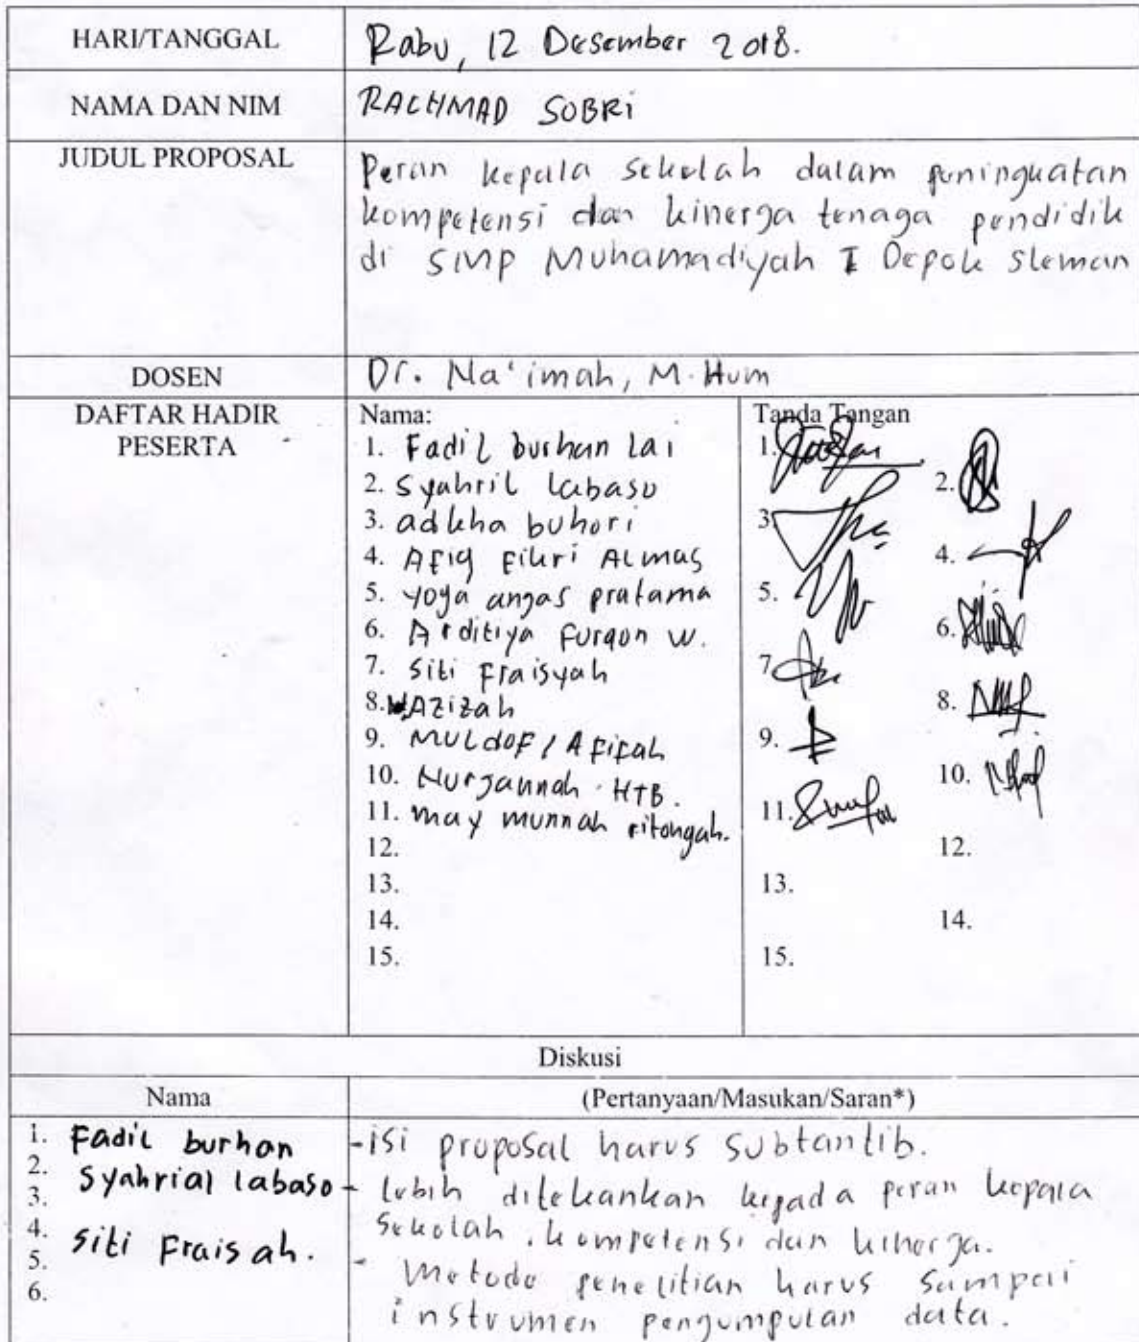 HARI/TANGGAL Rabu, 12 Desember 2018.
NAMA DAN NIM RACHMAD SOBRi
JUDUL PROPOSAL Peran kepala sekolah dalam peningkatan
kompetensi dan kinerja tenaga pendidik
di SMP Muhamadiyah I Depok Sleman
DOSEN Dr. Na'imah, M.Hum
DAFTAR HADIR PESERTA
Nama:
1. Fadil burhan lai
2. Syahril labaso
3. adkha buhori
4. Afiq Fikri Almas
5. yoga angas pratama
6. Arditiya Furqon w.
7. Siti Fraisyah
8. Azizah
9. Muldof / Afifah
10. Nurjannah HTB.
11. may munnah ritongah.
12.
13.
14.
15.
Tanda Tangan
1.
2.
3.
4.
5.
6.
7.
8.
9.
10.
11.
12.
13.
14.
15.
Diskusi
Nama (Pertanyaan/Masukan/Saran*)
1. Fadil burhan
2. Syahrial labaso
3.
4. Siti Fraisah.
5.
6.
- isi proposal harus subtantib.
- lebih ditekankan kepada peran kepala
sekolah, kompetensi dan kinerja.
- Metode penelitian harus sampai
instrumen pengumpulan data.